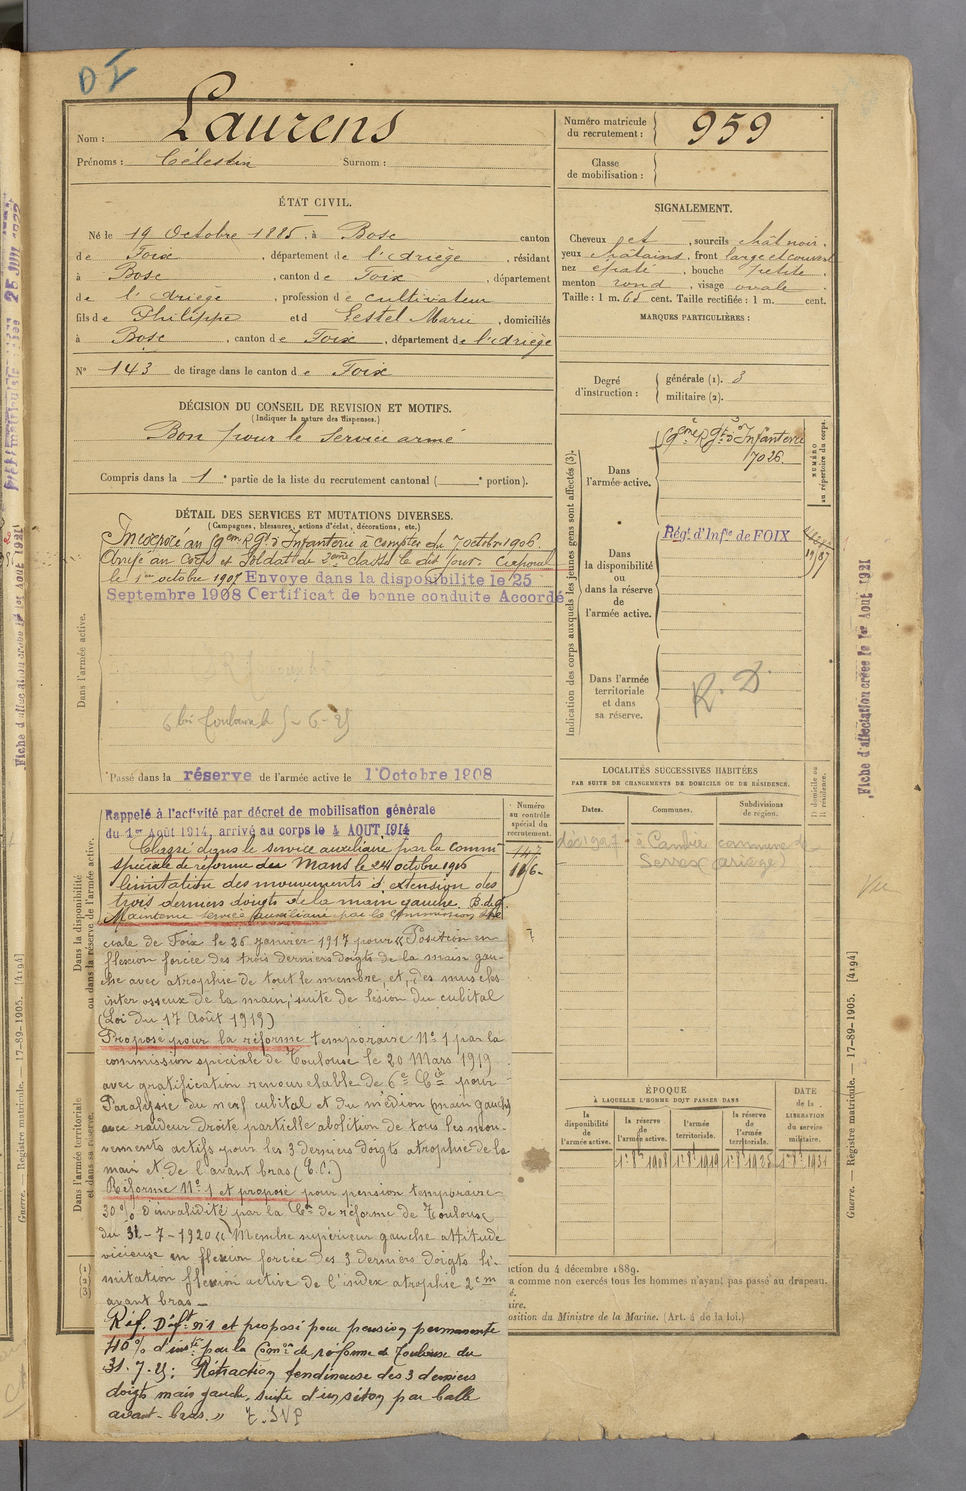 DI
Nom : Laurens
Prénoms : Célestin Surnom :
Numéro matricule du recrutement : 959
Classe de mobilisation :
ÉTAT CIVIL.
Né le 19 Octobre 1885, à Bosc canton
de Foix, département de l'Ariège, résidant
à Bosc, canton de Foix, département
de l'Ariège, profession de cultivateur
fils de Philippe et d Sestel Marie, domiciliés
à Bosc, canton de Foix, département de l'Ariège
N° 143 de tirage dans le canton de Foix
SIGNALEMENT.
Cheveux jet, sourcils chât noir,
yeux châtains, front large et couvert
nez épaté, bouche petite,
menton rond, visage ovale.
Taille : 1 m. 65 cent. Taille rectifiée : 1 m. cent.
MARQUES PARTICULIÈRES :
Degré d'instruction : générale (1). 3
militaire (2).
DÉCISION DU CONSEIL DE REVISION ET MOTIFS.
(Indiquer la nature des dispenses.)
Bon pour le Service armé
Compris dans la 1e partie de la liste du recrutement cantonal ( e portion).
DÉTAIL DES SERVICES ET MUTATIONS DIVERSES.
(Campagnes, blessures, actions d'éclat, décorations, etc.)
Incorporé au 9eme Rgt d'Infanterie à compter du 7 octobre 1906.
Arrivé au Corps et Soldat de 2eme classe le dit jour. Caporal
le 1er octobre 1907 Envoye dans la disponibilite le 25
Septembre 1908 Certificat de bonne conduite Accordé
Dans l'armée active.
Passé dans la réserve de l'armée active le 1 Octobre 1908
Indication des corps auxquels les jeunes gens sont affectés (3).
NUMÉRO au répertoire du corps.
Dans l'armée active.
9eme Rgt d'Infanterie
7026.
Dans la disponibilité ou dans la réserve de l'armée active.
Régt d'Infie de FOIX
Dans l'armée territoriale et dans sa réserve.
R. D.
Dans la disponibilité ou dans la réserve de l'armée active.
Numéro au contrôle spécial du recrutement.
147
Rappelé à l'activité par décret de mobilisation générale
du 1er Août 1914, arrivé au corps le 4 AOUT 1914
Classé dans le service auxiliaire par la Commn
spéciale de réforme du Mans le 24 octobre 1916
"limitation des mouvements d'extension des
trois derniers doigts de la main gauche. B.d.g.
Maintenu service auxiliaire par la Commission spé
ciale de Foix le 26 janvier 1917 pour « Position en
flexion forcée des trois derniers doigts de la main gau-
che avec atrophie de tout le membre, et, des muscles
inter osseux de la main, suite de lésion du cubital
(Loi du 17 Août 1915)
Proposé pour la réforme temporaire N° 1 par la
commission spéciale de Toulouse le 20 Mars 1919
avec gratification renouvelable de 6e Cie pour
Paralysie du nerf cubital et du médian (main gauche)
avec raideur droite partielle abolition de tous les mou-
vements actifs pour les 3 derniers doigts atrophie de la
main et de l'avant bras (E.C.)
Réformé N° 1 et proposé pour pension temporaire
30% d'invalidité par la Cn de réforme de Toulouse
du 31-7-1920 « Membre supérieur gauche attitude
vicieuse en flexion forcée des 3 derniers doigts li-
mitation flexion active de l'index atrophie 2 cm
avant bras —
Réf. Déft n° 1 et proposé pour pension permanente
40% d'invté par la Comon de réforme de Toulouse du
31.7.25 : Rétraction tendineuse des 3 derniers
doigts main gauche, suite d'un séton par balle
avant-bras. » T.S.V.P
Dans l'armée territoriale et dans sa réserve.
LOCALITÉS SUCCESSIVES HABITÉES
PAR SUITE DE CHANGEMENTS DE DOMICILE OU DE RÉSIDENCE.
Dates. Communes. Subdivisions de région. D domicile ou R résidence.
à Cambié commune de
Serres (Ariège)
Vu
ÉPOQUE
À LAQUELLE L'HOMME DOIT PASSER DANS
DATE de la LIBÉRATION du service militaire.
la disponibilité de l'armée active. la réserve de l'armée active. l'armée territoriale. la réserve de l'armée territoriale.
1er 8bre 1908 1er 8bre 1919 1er 8bre 1925 1er 8bre 1931
(1)
(2)
(3)
ction du 4 décembre 1889.
a comme non exercés tous les hommes n'ayant pas passé au drapeau.
é.
aire.
osition du Ministre de la Marine. (Art. 4 de la loi.)
Fiche d'affectation créée le 1er Aout 1921
Guerre. — Registre matricule. — 17-89-1905. [4194]
Guerre. — Registre matricule. — 17-89-1905. [4194]
Fiche d'affectation créée le 1er Aout 1921